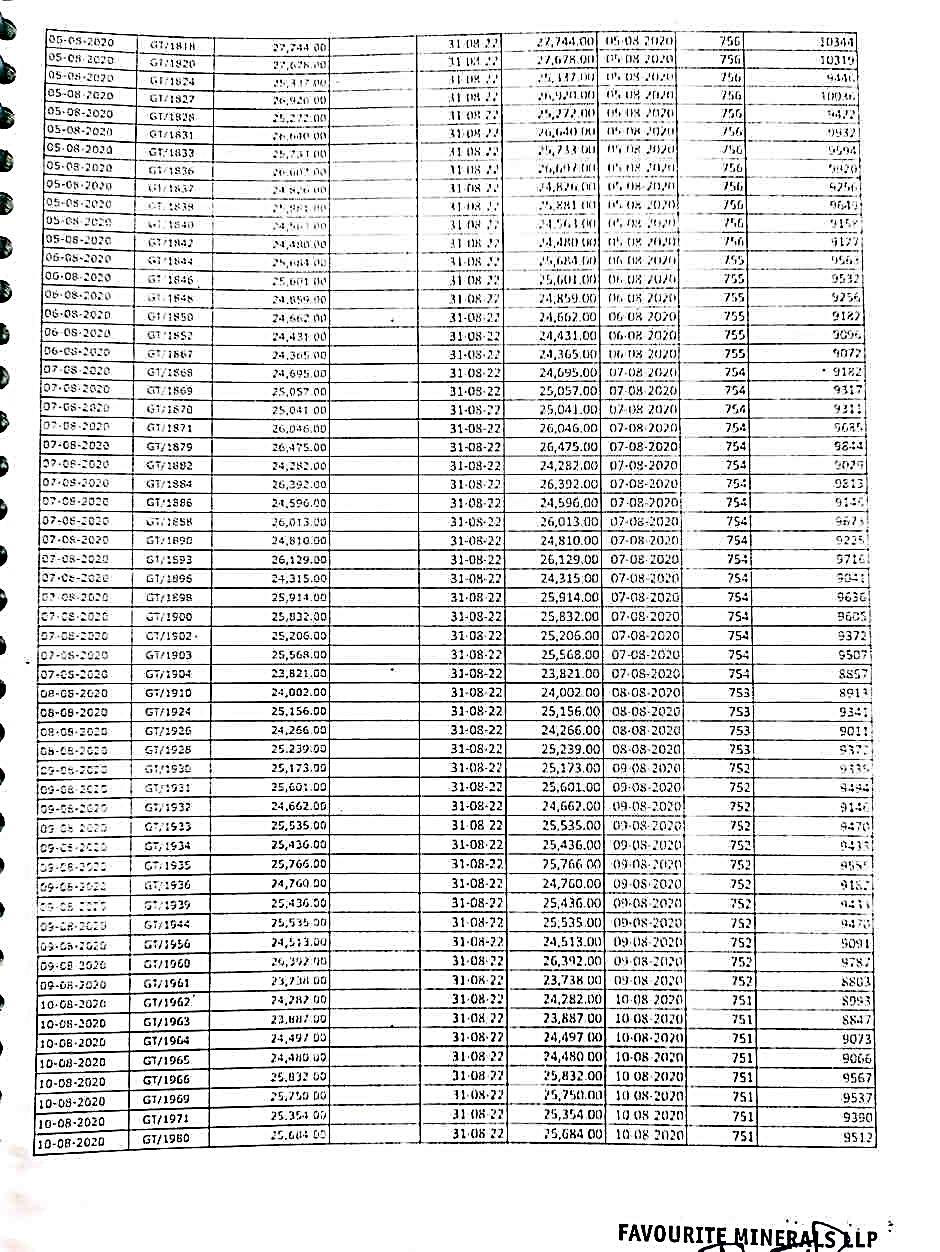 05-08-2020 GT/1818 27,744.00 31-08-22 27,744.00 05-08-2020 756 10344
05-08-2020 GT/1820 27,678.00 31-08-22 27,678.00 05-08-2020 756 10319
05-08-2020 GT/1824 25,337.00 31-08-22 25,337.00 05-08-2020 756 9446
05-08-2020 GT/1827 26,920.00 31-08-22 26,920.00 05-08-2020 756 10036
05-08-2020 GT/1828 25,272.00 31-08-22 25,272.00 05-08-2020 756 9422
05-08-2020 GT/1831 26,640.00 31-08-22 26,640.00 05-08-2020 756 9932
05-08-2020 GT/1833 25,733.00 31-08-22 25,733.00 05-08-2020 756 9594
05-08-2020 GT/1836 26,607.00 31-08-22 26,607.00 05-08-2020 756 9920
05-08-2020 GT/1837 24,826.00 31-08-22 24,826.00 05-08-2020 756 9256
05-08-2020 25,881.00 31-08-22 25,881.00 05-08-2020 756 9649
05-08-2020 GT/1840 24,563.00 31-08-22 24,563.00 05-08-2020 756 9158
05-08-2020 GT/1842 24,480.00 31-08-22 24,480.00 05-08-2020 756 9127
06-08-2020 GT/1844 25,684.00 31-08-22 25,684.00 06-08-2020 755 9563
06-08-2020 GT/1846 25,601.00 31-08-22 25,601.00 06-08-2020 755 9532
06-08-2020 GT/1848 24,859.00 31-08-22 24,859.00 06-08-2020 755 9256
06-08-2020 GT/1850 24,662.00 31-08-22 24,662.00 06-08-2020 755 9182
06-08-2020 GT/1852 24,431.00 31-08-22 24,431.00 06-08-2020 755 9096
06-08-2020 GT/1867 24,365.00 31-08-22 24,365.00 06-08-2020 755 9072
07-08-2020 GT/1868 24,695.00 31-08-22 24,695.00 07-08-2020 754 9182
07-08-2020 GT/1869 25,057.00 31-08-22 25,057.00 07-08-2020 754 9317
07-08-2020 GT/1870 25,041.00 31-08-22 25,041.00 07-08-2020 754 9311
07-08-2020 GT/1871 26,046.00 31-08-22 26,046.00 07-08-2020 754 9685
07-08-2020 GT/1879 26,475.00 31-08-22 26,475.00 07-08-2020 754 9844
07-08-2020 GT/1882 24,282.00 31-08-22 24,282.00 07-08-2020 754 9029
07-08-2020 GT/1884 26,392.00 31-08-22 26,392.00 07-08-2020 754 9813
07-08-2020 GT/1886 24,596.00 31-08-22 24,596.00 07-08-2020 754 9146
07-08-2020 GT/1888 26,013.00 31-08-22 26,013.00 07-08-2020 754 9673
07-08-2020 GT/1890 24,810.00 31-08-22 24,810.00 07-08-2020 754 9225
07-08-2020 GT/1893 26,129.00 31-08-22 26,129.00 07-08-2020 754 9716
07-08-2020 GT/1896 24,315.00 31-08-22 24,315.00 07-08-2020 754 9041
07-08-2020 GT/1898 25,914.00 31-08-22 25,914.00 07-08-2020 754 9636
07-08-2020 GT/1900 25,832.00 31-08-22 25,832.00 07-08-2020 754 9605
07-08-2020 GT/1902 25,206.00 31-08-22 25,206.00 07-08-2020 754 9372
07-08-2020 GT/1903 25,568.00 31-08-22 25,568.00 07-08-2020 754 9507
07-08-2020 GT/1904 23,821.00 31-08-22 23,821.00 07-08-2020 754 8857
08-08-2020 GT/1910 24,002.00 31-08-22 24,002.00 08-08-2020 753 8913
08-08-2020 GT/1924 25,156.00 31-08-22 25,156.00 08-08-2020 753 9341
08-08-2020 GT/1926 24,266.00 31-08-22 24,266.00 08-08-2020 753 9011
08-08-2020 GT/1928 25,239.00 31-08-22 25,239.00 08-08-2020 753 9372
09-08-2020 GT/1930 25,173.00 31-08-22 25,173.00 09-08-2020 752 9335
09-08-2020 GT/1931 25,601.00 31-08-22 25,601.00 09-08-2020 752 9494
09-08-2020 GT/1932 24,662.00 31-08-22 24,662.00 09-08-2020 752 9146
09-08-2020 GT/1933 25,535.00 31-08-22 25,535.00 09-08-2020 752 9470
09-08-2020 GT/1934 25,436.00 31-08-22 25,436.00 09-08-2020 752 9433
09-08-2020 GT/1935 25,766.00 31-08-22 25,766.00 09-08-2020 752 9555
09-08-2020 GT/1936 24,760.00 31-08-22 24,760.00 09-08-2020 752 9182
09-08-2020 GT/1939 25,436.00 31-08-22 25,436.00 09-08-2020 752 9433
09-08-2020 GT/1944 25,535.00 31-08-22 25,535.00 09-08-2020 752 9470
09-08-2020 GT/1956 24,513.00 31-08-22 24,513.00 09-08-2020 752 9091
09-08-2020 GT/1960 26,392.00 31-08-22 26,392.00 09-08-2020 752 9787
09-08-2020 GT/1961 23,738.00 31-08-22 23,738.00 09-08-2020 752 8803
10-08-2020 GT/1962 24,282.00 31-08-22 24,282.00 10-08-2020 751 8993
10-08-2020 GT/1963 23,887.00 31-08-22 23,887.00 10-08-2020 751 8847
10-08-2020 GT/1964 24,497.00 31-08-22 24,497.00 10-08-2020 751 9073
10-08-2020 GT/1965 24,480.00 31-08-22 24,480.00 10-08-2020 751 9066
10-08-2020 GT/1966 25,832.00 31-08-22 25,832.00 10-08-2020 751 9567
10-08-2020 GT/1969 25,750.00 31-08-22 25,750.00 10-08-2020 751 9537
10-08-2020 GT/1971 25,354.00 31-08-22 25,354.00 10-08-2020 751 9390
10-08-2020 GT/1980 25,684.00 31-08-22 25,684.00 10-08-2020 751 9512
FAVOURITE MINERALS LLP